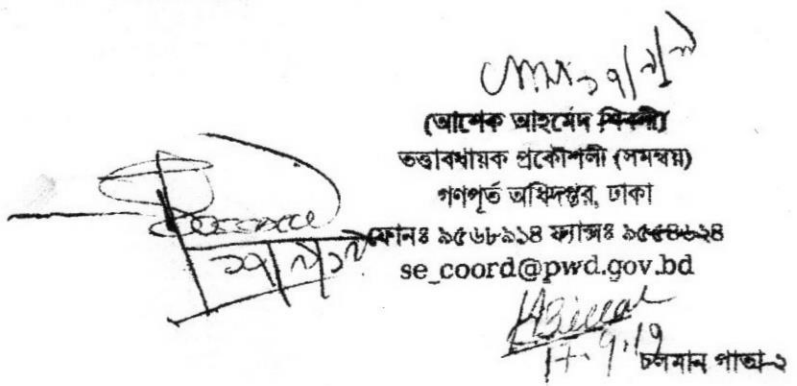 ১৭/৯/১৯
(আশেক আহমেদ শিবলী)
তত্ত্বাবধায়ক প্রকৌশলী (সমন্বয়)
গণপূর্ত অধিদপ্তর, ঢাকা
ফোনঃ ৯৫৬৮৯১৪ ফ্যাক্সঃ ৯৫৫৪৬২৪
se_coord@pwd.gov.bd
১৭/৯/১৯
17.9.19
চলমান পাতা-২